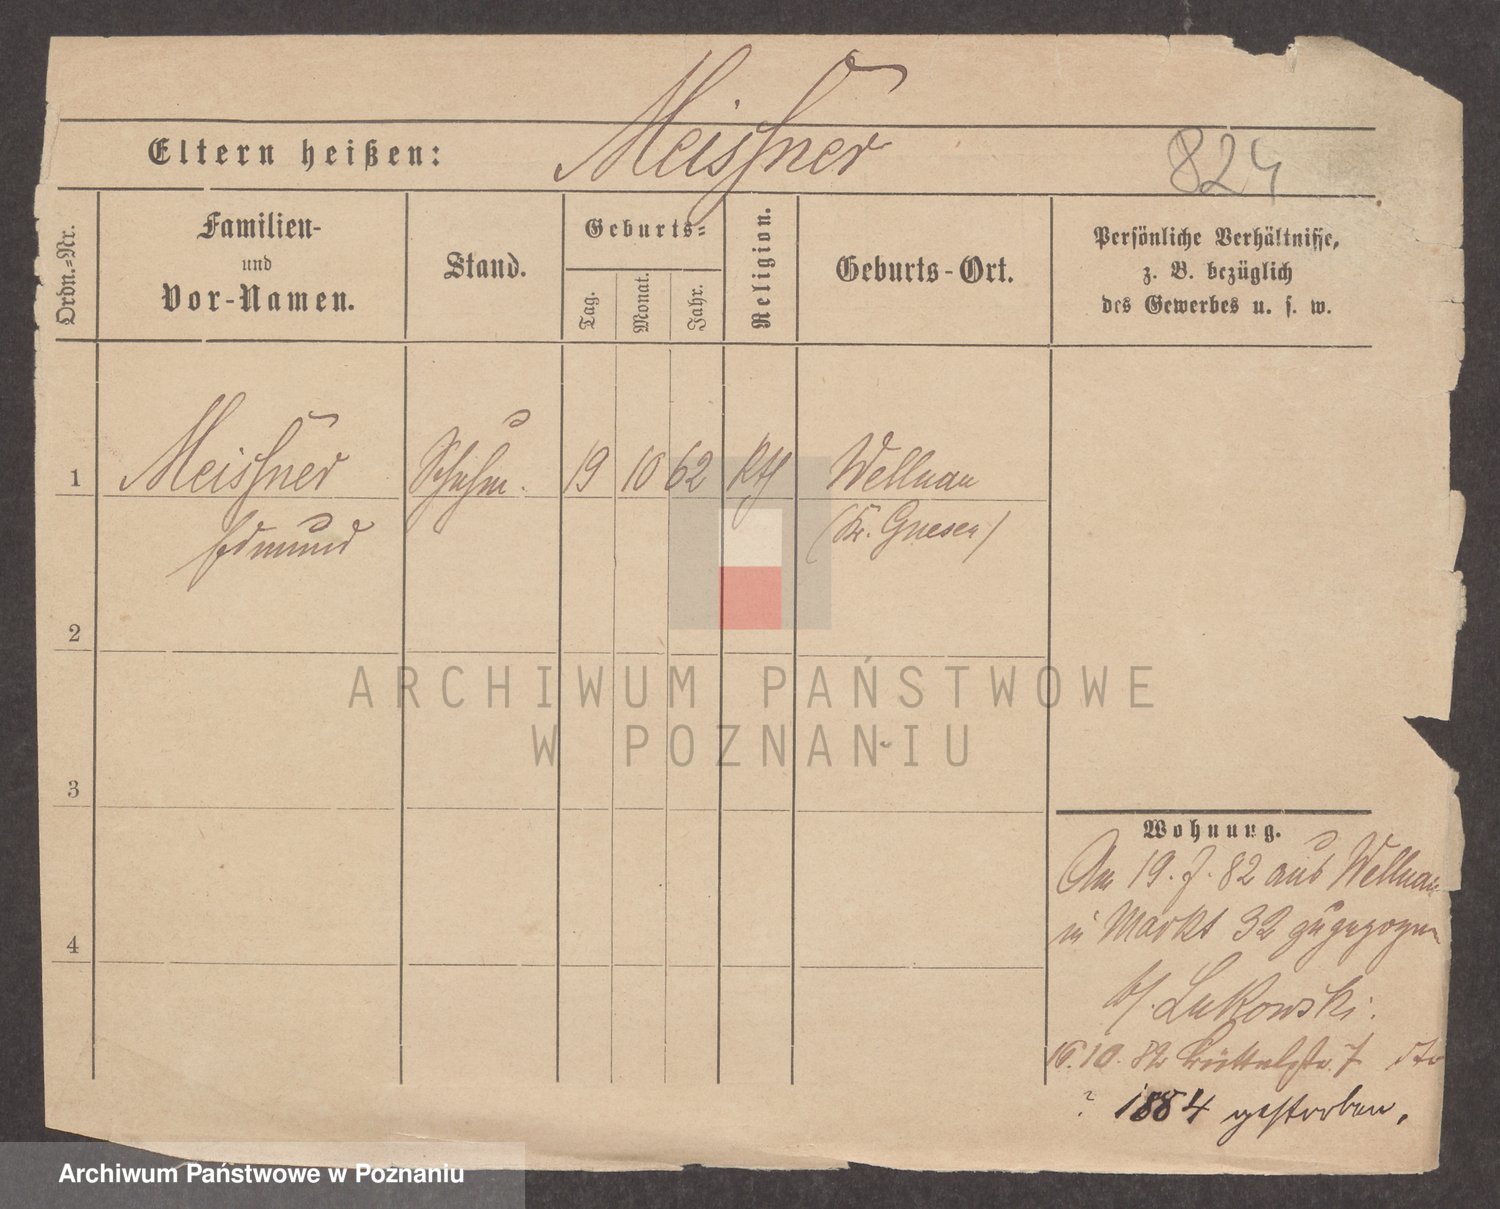 Meissner
Eltern heißen:
824
Ordn.-Nr.
Familien-
und
Vor-Namen.
Stand.
Geburts-
Tag.
Monat.
Jahr.
Religion.
Geburts-Ort.
Persönliche Verhältnisse,
z. B. bezüglich
des Gewerbes u. s. w.
1
Meissner
Schuhm.
19
10
62
Kth
Wellnau
Edmund
(Kr. Gnesen)
2
3
4
Wohnung.
Am 19. 7. 82 aus Wellnau
in Markt 32 zugezogen
b/. Lukowski.
16.10.82 Büttelstr. 7 dto
? 1884 gestorben.
ARCHIWUM PAŃSTWOWE
W POZNANIU
Archiwum Państwowe w Poznaniu